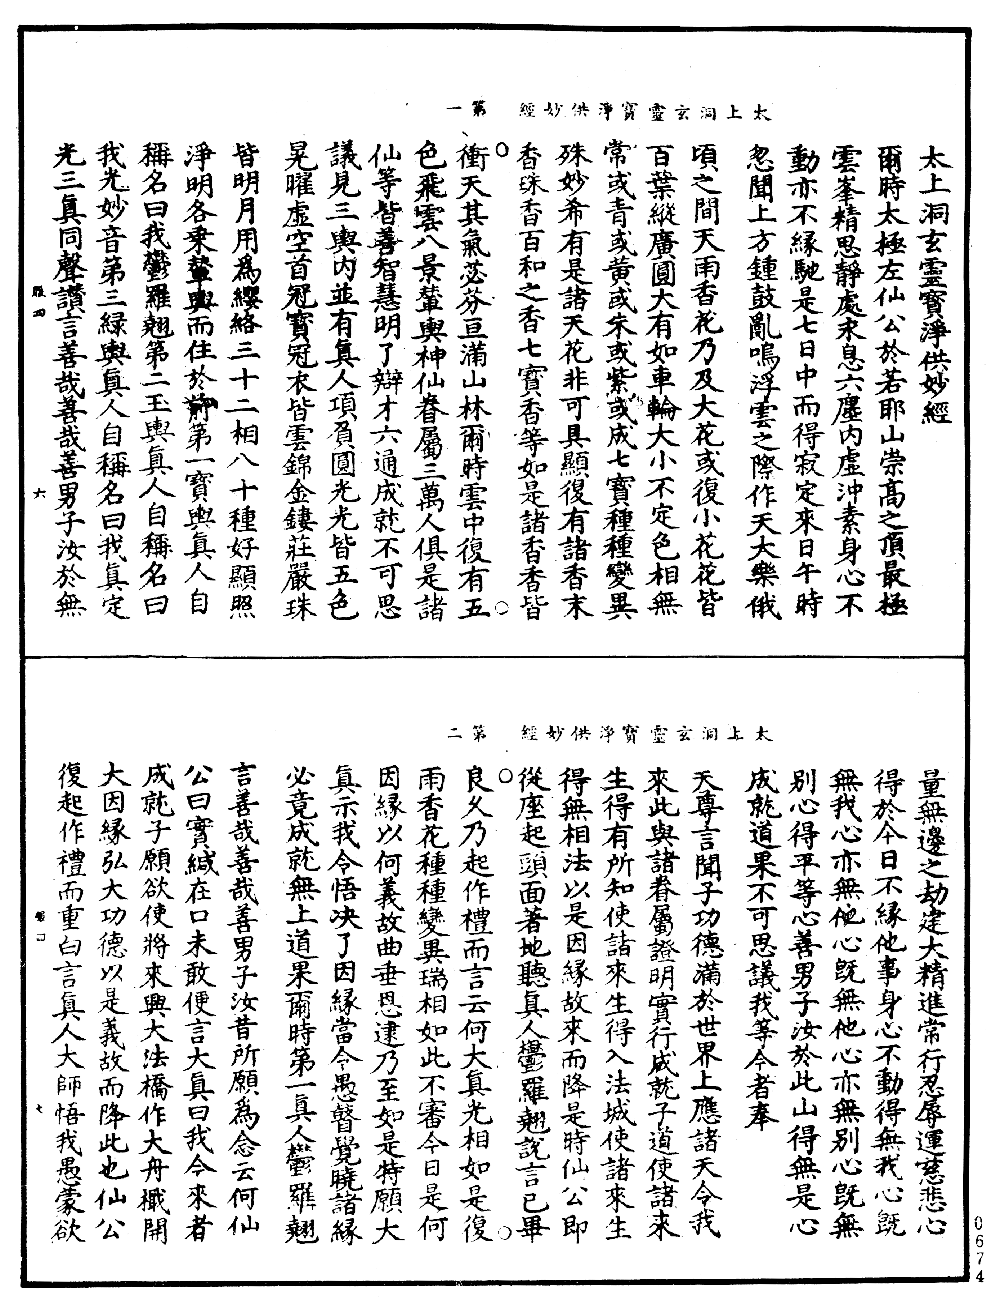 太上洞玄靈寶淨供妙經　第一
太上洞玄靈寶淨供妙經
爾時太極左仙公於若耶山崇高之頂最極
雲峯精思靜處求息六塵内虛沖素身心不
動亦不緣馳是七日中而得寂定來日午時
忽聞上方鍾鼓亂鳴浮雲之際作天大樂俄
頃之間天雨香花乃及大花或復小花花皆
百葉縱廣圓大有如車輪大小不定色相無
常或青或黄或朱或紫或成七寶種種變異
殊妙希有是諸天花非可具顯復有諸香末
香珠香百和之香七寶香等如是諸香香皆
衝天其氣苾芬亘滿山林爾時雲中復有五
色飛雲八景輦輿神仙眷屬三萬人俱是諸
仙等皆善智慧明了辯才六通成就不可思
議見三輿内並有真人項負圓光光皆五色
晃曜虛空首冠寶冠衣皆雲錦金鏤莊嚴珠
皆明月用爲纓絡三十二相八十種好顯照
淨明各乘輦輿而住於前第一寶輿真人自
稱名曰我鬱羅翹第二玉輿真人自稱名曰
我光妙音第三緑輿真人自稱名曰我真定
光三真同聲讚言善哉善哉善男子汝於無
六
太上洞玄靈寶淨供妙經　第二
量無邊之劫建大精進常行忍辱運慈悲心
得於今日不緣他事身心不動得無我心既
無我心亦無他心既無他心亦無别心既無
别心得平等心善男子汝於此山得無是心
成就道果不可思議我等今者奉
天尊言聞子功德滿於世界上應諸天令我
來此與諸眷屬證明實行成就子道使諸來
生得有所知使諸來生得入法城使諸來生
得無相法以是因緣故來而降是時仙公即
從座起頭面著地聽真人鬱羅翹說言已畢
良久乃起作禮而言云何大真光相如是復
雨香花種種變異瑞相如此不審今日是何
因緣以何義故曲垂恩逮乃至如是特願大
真示我令悟決了因緣當令愚瞽覺曉諸緣
必竟成就無上道果爾時第一真人鬱羅翹
言善哉善哉善男子汝昔所願爲念云何仙
公曰實緘在口未敢便言大真曰我今來者
成就子願欲使將來興大法橋作大舟檝開
大因緣弘大功德以是義故而降此也仙公
復起作禮而重白言真人大師悟我愚蒙欲
七
0674